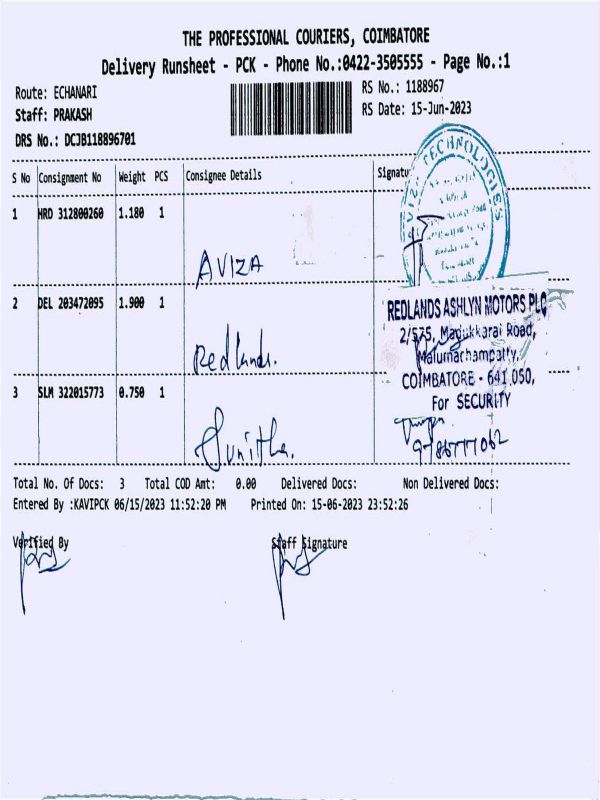 THE PROFESSIONAL COURIERS, COIMBATORE
Delivery Runsheet - PCK - Phone No.:0422-3505555 - Page No.:1
Route: ECHANARI
RS No.: 1188967
Staff: PRAKASH
RS Date: 15-Jun-2023
DRS No.: DCJB118896701
S No Consignment No Weight PCS Consignee Details Signatu
AVIZA TECHNOLOGIES
1 HRD 312800260 1.180 1
AVIZA
2 DEL 203472095 1.900 1
Redlands.
REDLANDS ASHLYN MOTORS PLC
2/575, Madukkarai Road,
Malumachampatty,
COIMBATORE - 641 050,
For SECURITY
3 SLM 322015773 0.750 1
Sunitha.
9786777062
Total No. Of Docs: 3 Total COD Amt: 0.00 Delivered Docs: Non Delivered Docs:
Entered By :KAVIPCK 06/15/2023 11:52:20 PM Printed On: 15-06-2023 23:52:26
Verified By
Staff Signature